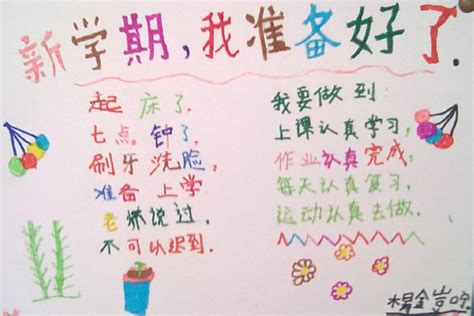 新学期,我准备好了.
起床了.
七点钟了.
刷牙洗脸,
准备上学.
老师说过.
不可以迟到.
我要做到:
上课认真学习,
作业认真完成,
每天认真复习,
运动认真去做.